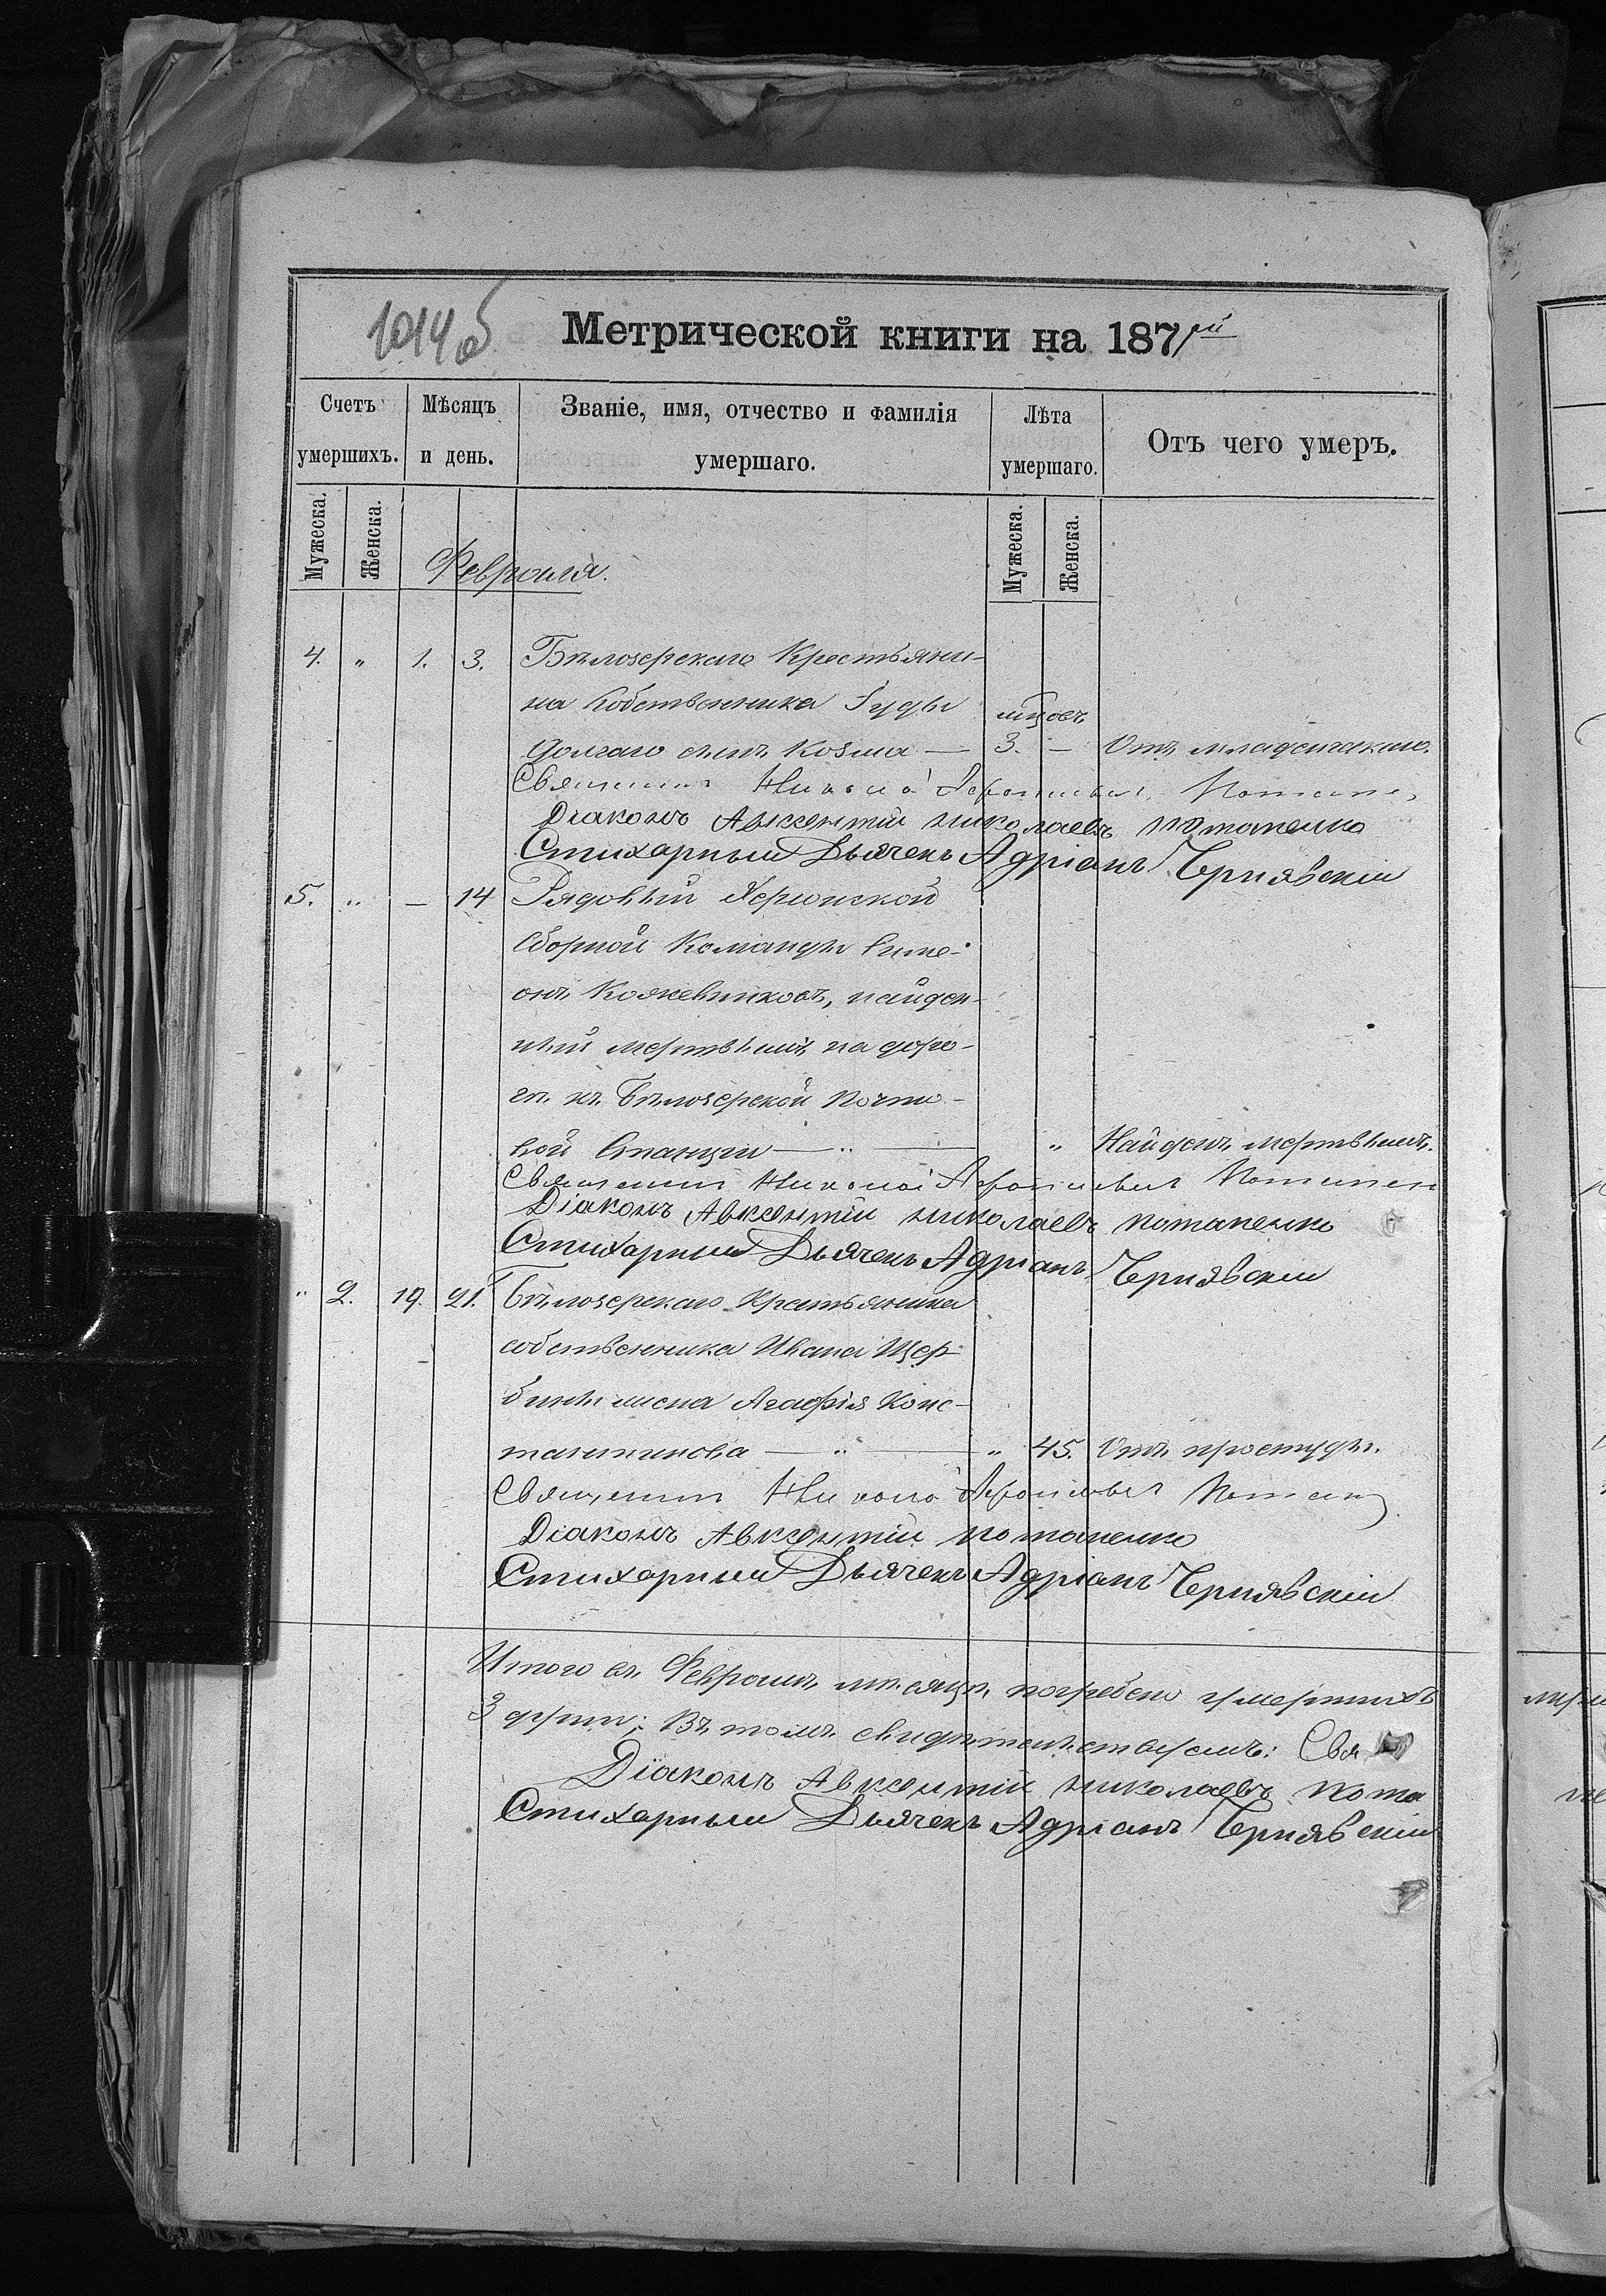 1014об
Метрической книги на 1871й
Счетъ умершихъ.
Мѣсяцъ и день.
Званіе, имя, отчество и фамилія умершаго.
Лѣта умершаго.
Отъ чего умеръ.
Мужеска.
Женска.
Мужеска.
Женска.
Февраля.
4. " 1. 3. Бѣлозерскаго Крестьяни-
на Собственника Іуды мцовъ
Долгаго сынъ Козма — 3. — Отъ младенческаго.
Священник Николай Потапен
Діаконъ Авксентій николаевъ потапенко
Стихарный Дьячекъ Адріанъ Чернявскій
5. " — 14 Рядовый Херсонской
Сборной Команды Симе-
онъ Кожевниковъ, найден-
ный мертвымъ на доро-
гѣ къ Бѣлозерской Почто-
вой Станции — " — " Найденъ мертвымъ.
Священник Николай Потапен
Діаконъ Авксентій николаевъ потапенко
Стихарный Дьячекъ Адріанъ Чернявскій
" 2. 19. 21. Бѣлозерскаго Крестьянина
собственника Ивана Щер-
бины жена Агафія Конс-
тантинова — " — " 45. Отъ простуды.
Священник Николай Потапен
Діаконъ Авксентій потапенко
Стихарный Дьячекъ Адріанъ Чернявскій
Итого въ Февралѣ мѣсяцѣ погребено умершихъ
3 души; Въ томъ свидѣтельствуемъ: Свя
Діаконъ Авксентій николаевъ пота
Стихарный Дьячекъ Адріанъ Чернявскій